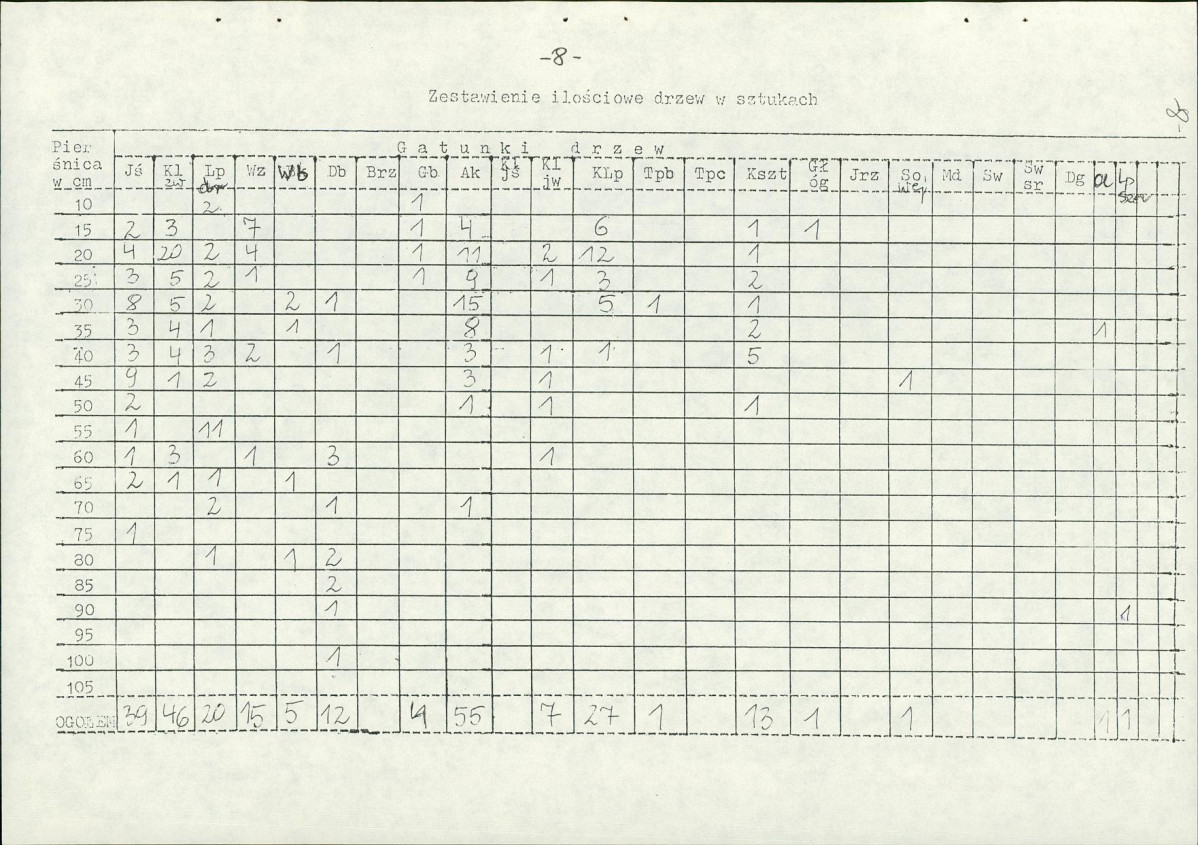 -8-
Zestawienie ilościowe drzew w sztukach
-8-
Pier śnica w cm
Gatunki drzew
Jś Kl zw Lp dbr Wz Wb Db Brz Gb Ak Kl jś Kl jw KLp Tpb Tpc Kszt Gł óg Jrz So wej Md Sw Sw sr Dg Ol Lp szer
10 2 1
15 2 3 7 1 4 6 1 1
20 4 20 2 4 1 11 2 12 1
25 3 5 2 1 1 9 1 3 2
30 8 5 2 2 1 15 5 1 1
35 3 4 1 1 8 2 1
40 3 4 3 2 1 3 1 1 5
45 9 1 2 3 1 1
50 2 1 1 1
55 1 11
60 1 3 1 3 1
65 2 1 1 1
70 2 1 1
75 1
80 1 1 2
85 2
90 1 1
95
100 1
105
OGOŁEM 39 46 20 15 5 12 4 55 7 27 1 13 1 1 1 1